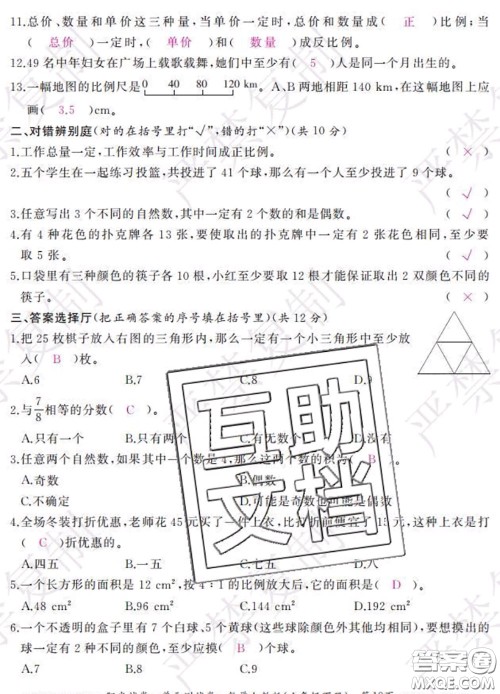 11.总价、数量和单价这三种量,当单价一定时,总价和数量成( 正 )比例;当
( 总价 )一定时,( 单价 )和( 数量 )成反比例。
12.49名中年妇女在广场上载歌载舞,她们中至少有( 5 )人是同一个月出生的。
13.一幅地图的比例尺是 0 40 80 120 km 。A、B两地相距140 km,在这幅地图上应
画( 3.5 )cm。
二、对错辨别庭(对的在括号里打“√”,错的打“×”)(共10分)
1.工作总量一定,工作效率与工作时间成正比例。 ( × )
2.五个学生在一起练习投篮,共投进了41个球,那么有一个人至少投进了9个球。
( √ )
3.任意写出3个不同的自然数,其中一定有2个数的和是偶数。 ( √ )
4.有4种花色的扑克牌各13张,要使取出的扑克牌中一定有2张花色相同,至少要
取5张。 ( √ )
5.口袋里有三种颜色的筷子各10根,小红至少要取12根才能保证取出2双颜色不同的
筷子。 ( × )
三、答案选择厅(把正确答案的序号填在括号里)(共12分)
1.把25枚棋子放入右图的三角形内,那么一定有一个小三角形中至少放
入( B )枚。
A.6 B.7 C.8 D.9
2.与7/8相等的分数( C )。
A.只有一个 B.只有两个 C.有无数个 D.没有
3.任意两个自然数,如果其中一个数是4,那么这两个数的积为( B )。
A.奇数 B.偶数
C.不确定 D.可能是奇数也可能是偶数
4.全场冬装打折优惠,老师花45元买了一件上衣,比打折前便宜了15元,这种上衣是打
( C )折优惠的。
A.四五 B.一五 C.七五 D.八
5.一个长方形的面积是12 cm²,按4∶1的比例放大后,它的面积是( D )。
A.48 cm² B.96 cm² C.144 cm² D.192 cm²
6.一个不透明的盒子里有7个白球、5个黄球(这些球除颜色外其他均相同),要想摸出的
球一定有2种不同的颜色,至少应摸( B )个球。
A.7 B.8 C.9
互助文档
严禁复制